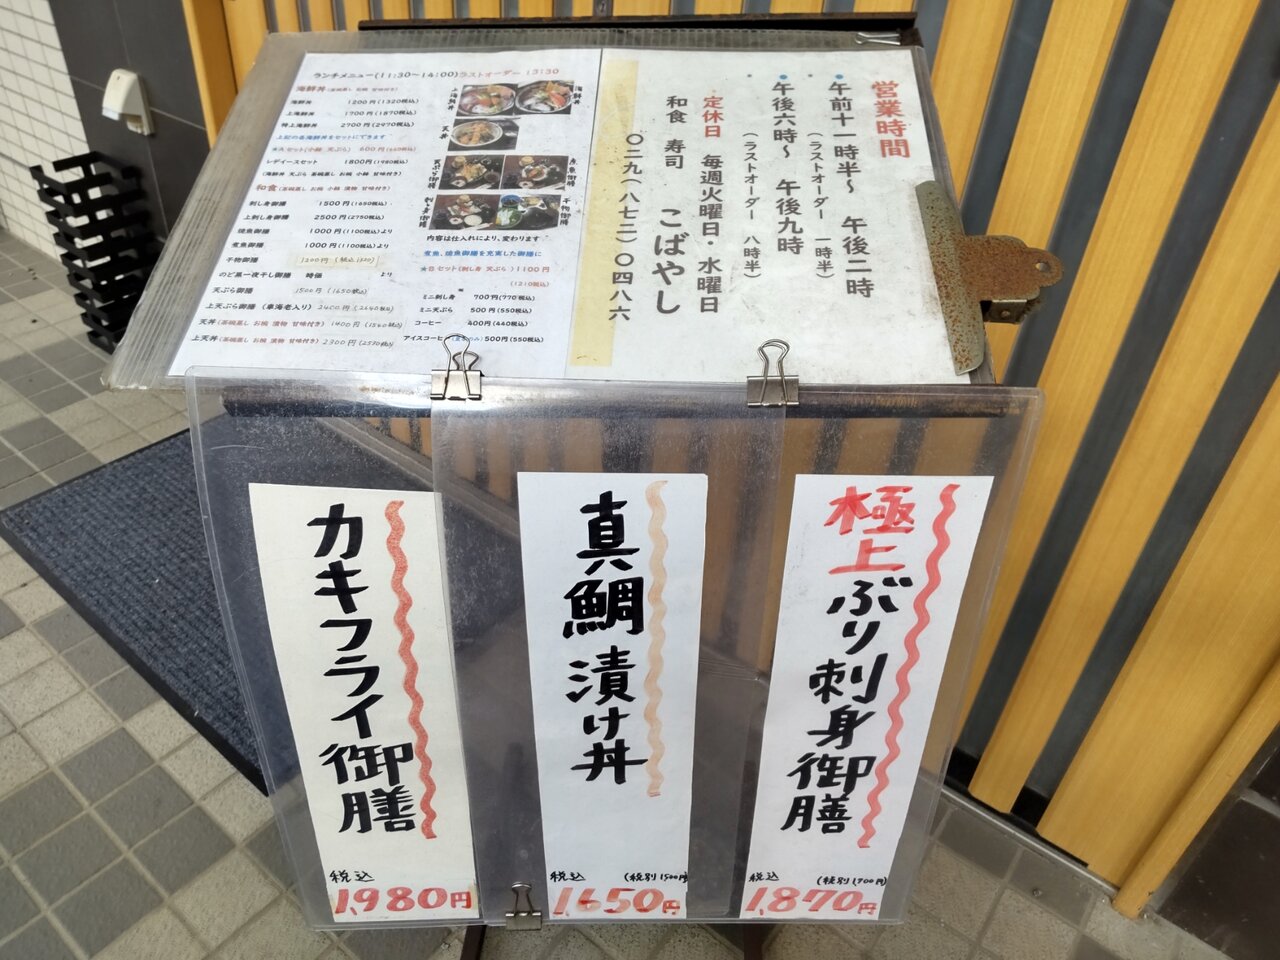 ランチメニュー(11:30～14:00)ラストオーダー 13:30
海鮮丼(茶碗蒸し お椀 甘味付き)
海鮮丼 1200円(1320税込)
上海鮮丼 1700円(1870税込)
特上海鮮丼 2700円(2970税込)
上記の各海鮮丼をセットにできます
★Aセット(小鉢 天ぷら) 600円(660税込)
レディースセット 1800円(1980税込)
(海鮮丼 天ぷら 茶碗蒸し お椀 小鉢 甘味付き)
和食(茶碗蒸し お椀 小鉢 漬物 甘味付き)
刺し身御膳 1500円(1650税込)
上刺し身御膳 2500円(2750税込)
焼魚御膳 1000円(1100税込)より
煮魚御膳 1000円(1100税込)より
干物御膳 1200円(税込1320)
のど黒一夜干し御膳 時価 より
天ぷら御膳 1500円(1650税込)
上天ぷら御膳(車海老入り) 2400円(2640税込)
天丼(茶碗蒸し お椀 漬物 甘味付き) 1400円(1540税込)
上天丼(茶碗蒸し お椀 漬物 甘味付き) 2300円(2530税込)
海鮮丼
上海鮮丼
天丼
天ぷら御膳
煮魚御膳
刺し身御膳
干物御膳
内容は仕入れにより、変わります
煮魚、焼魚御膳を充実した御膳に
★Bセット(刺し身 天ぷら)1100円
(1210税込)
ミニ刺し身 700円(770税込)
ミニ天ぷら 500円(550税込)
コーヒー 400円(440税込)
アイスコーヒー 500円(550税込)
営業時間
午前十一時半～ 午後二時
(ラストオーダー 一時半)
午後六時～ 午後九時
(ラストオーダー 八時半)
定休日 毎週火曜日・水曜日
和食 寿司 こばやし
〇二九(八七二)〇四八六
極上ぶり刺身御膳
税込 (税別1700円)
1,870円
真鯛漬け丼
税込 (税別1500円)
1,650円
カキフライ御膳
税込
1,980円